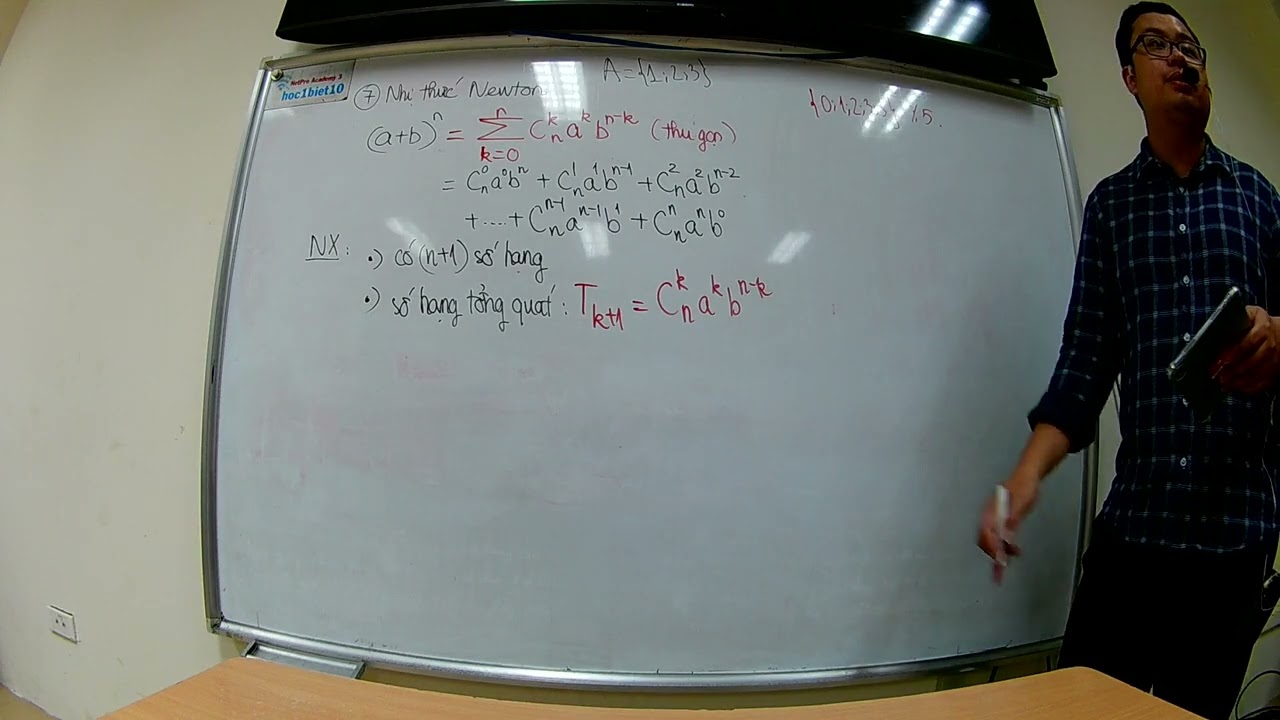 NetPro Academy 3
hoc1biet10
A = {1;2;3}
⑦ Nhị thức Newton
(a+b)^n = ∑_{k=0}^{n} C_n^k a^k b^{n-k} (thu gọn)
= C_n^0 a^0 b^n + C_n^1 a^1 b^{n-1} + C_n^2 a^2 b^{n-2}
+ .... + C_n^{n-1} a^{n-1} b^1 + C_n^n a^n b^0
NX: •) có (n+1) số hạng
•) số hạng tổng quát: T_{k+1} = C_n^k a^k b^{n-k}